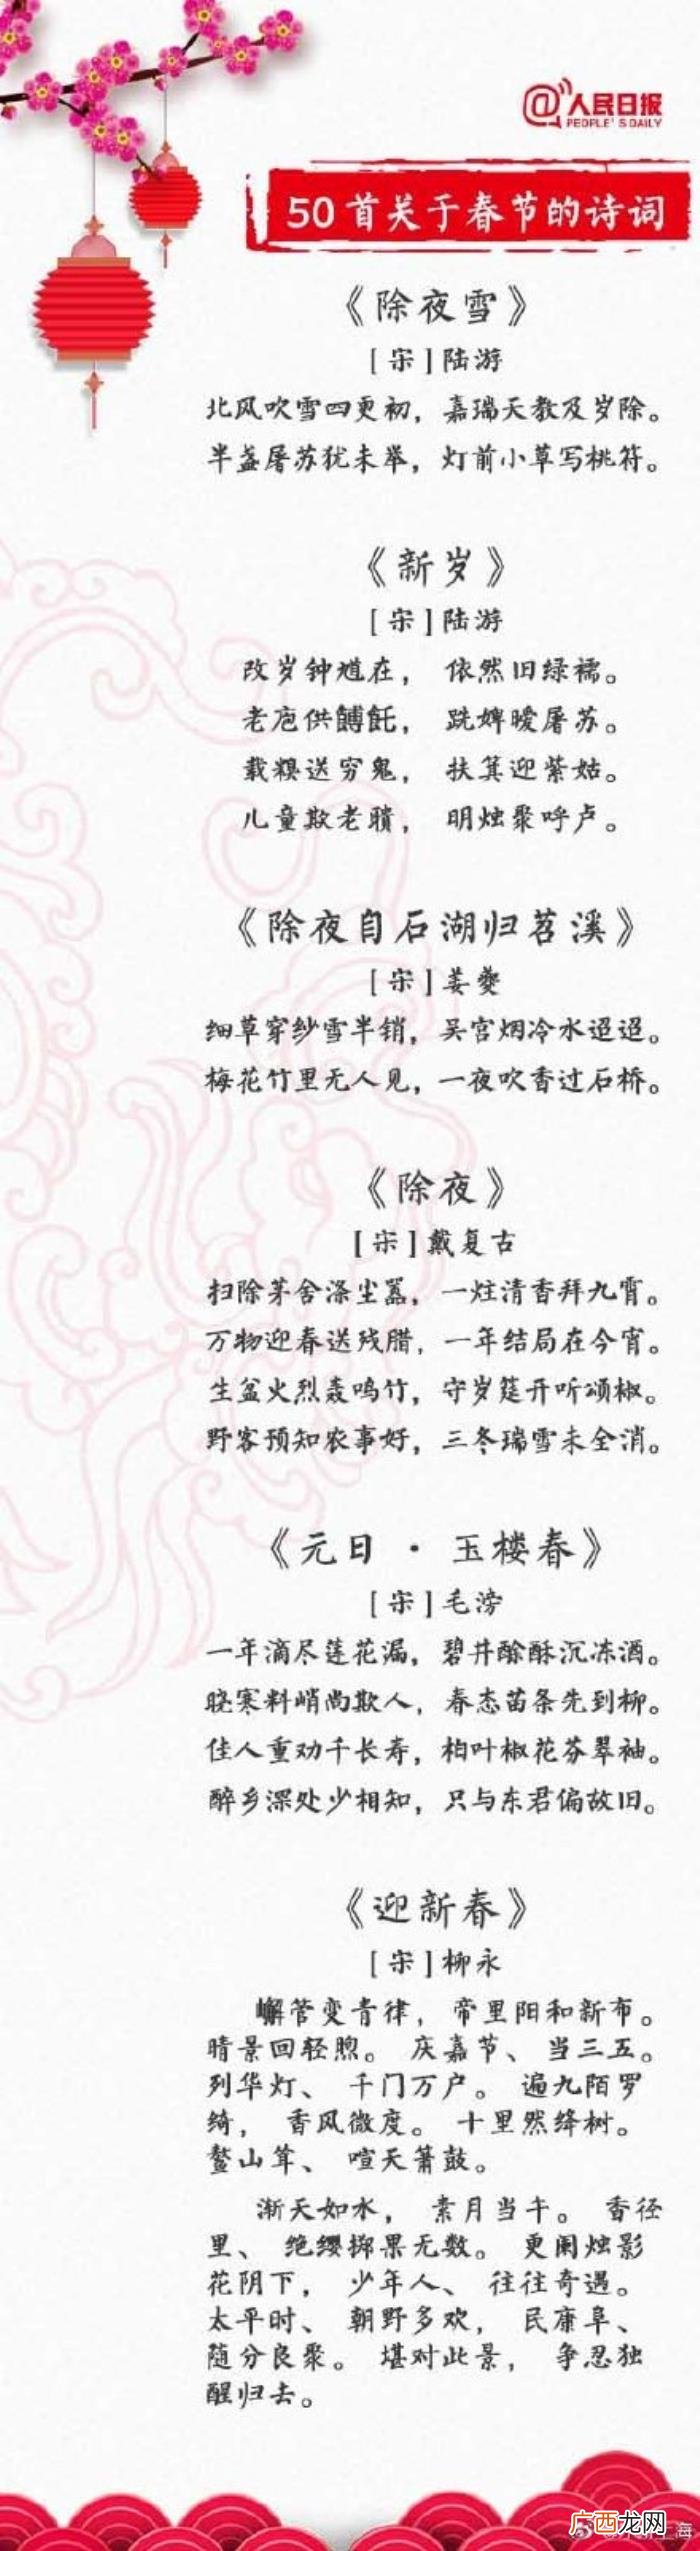 @人民日报
PEOPLE'S DAILY
50首关于春节的诗词
《除夜雪》
[宋]陆游
北风吹雪四更初，嘉瑞天教及岁除。
半盏屠苏犹未举，灯前小草写桃符。
《新岁》
[宋]陆游
改岁钟馗在， 依然旧绿襦。
老庖供餺飥， 跣婢暧屠苏。
载糗送穷鬼， 扶箕迎紫姑。
儿童欺老聩， 明烛聚呼卢。
《除夜自石湖归苕溪》
[宋]姜夔
细草穿纱雪半销，吴宫烟冷水迢迢。
梅花竹里无人见，一夜吹香过石桥。
《除夜》
[宋]戴复古
扫除茅舍涤尘嚣，一炷清香拜九霄。
万物迎春送残腊，一年结局在今宵。
生盆火烈轰鸣竹，守岁筵开听颂椒。
野客预知农事好，三冬瑞雪未全消。
《元日·玉楼春》
[宋]毛滂
一年滴尽莲花漏，碧井酴酥沉冻酒。
晓寒料峭尚欺人，春态苗条先到柳。
佳人重劝千长寿，柏叶椒花芬翠袖。
醉乡深处少相知，只与东君偏故旧。
《迎新春》
[宋]柳永
嶰管变青律，帝里阳和新布。
晴景回轻煦。 庆嘉节、 当三五。
列华灯、 千门万户。 遍九陌罗
绮， 香风微度。 十里然绛树。
鳌山耸、 喧天箫鼓。
渐天如水， 素月当午。 香径
里、 绝缨掷果无数。 更阑烛影
花阴下， 少年人、 往往奇遇。
太平时、 朝野多欢， 民康阜、
随分良聚。 堪对此景， 争忍独
醒归去。
广西龙网
海